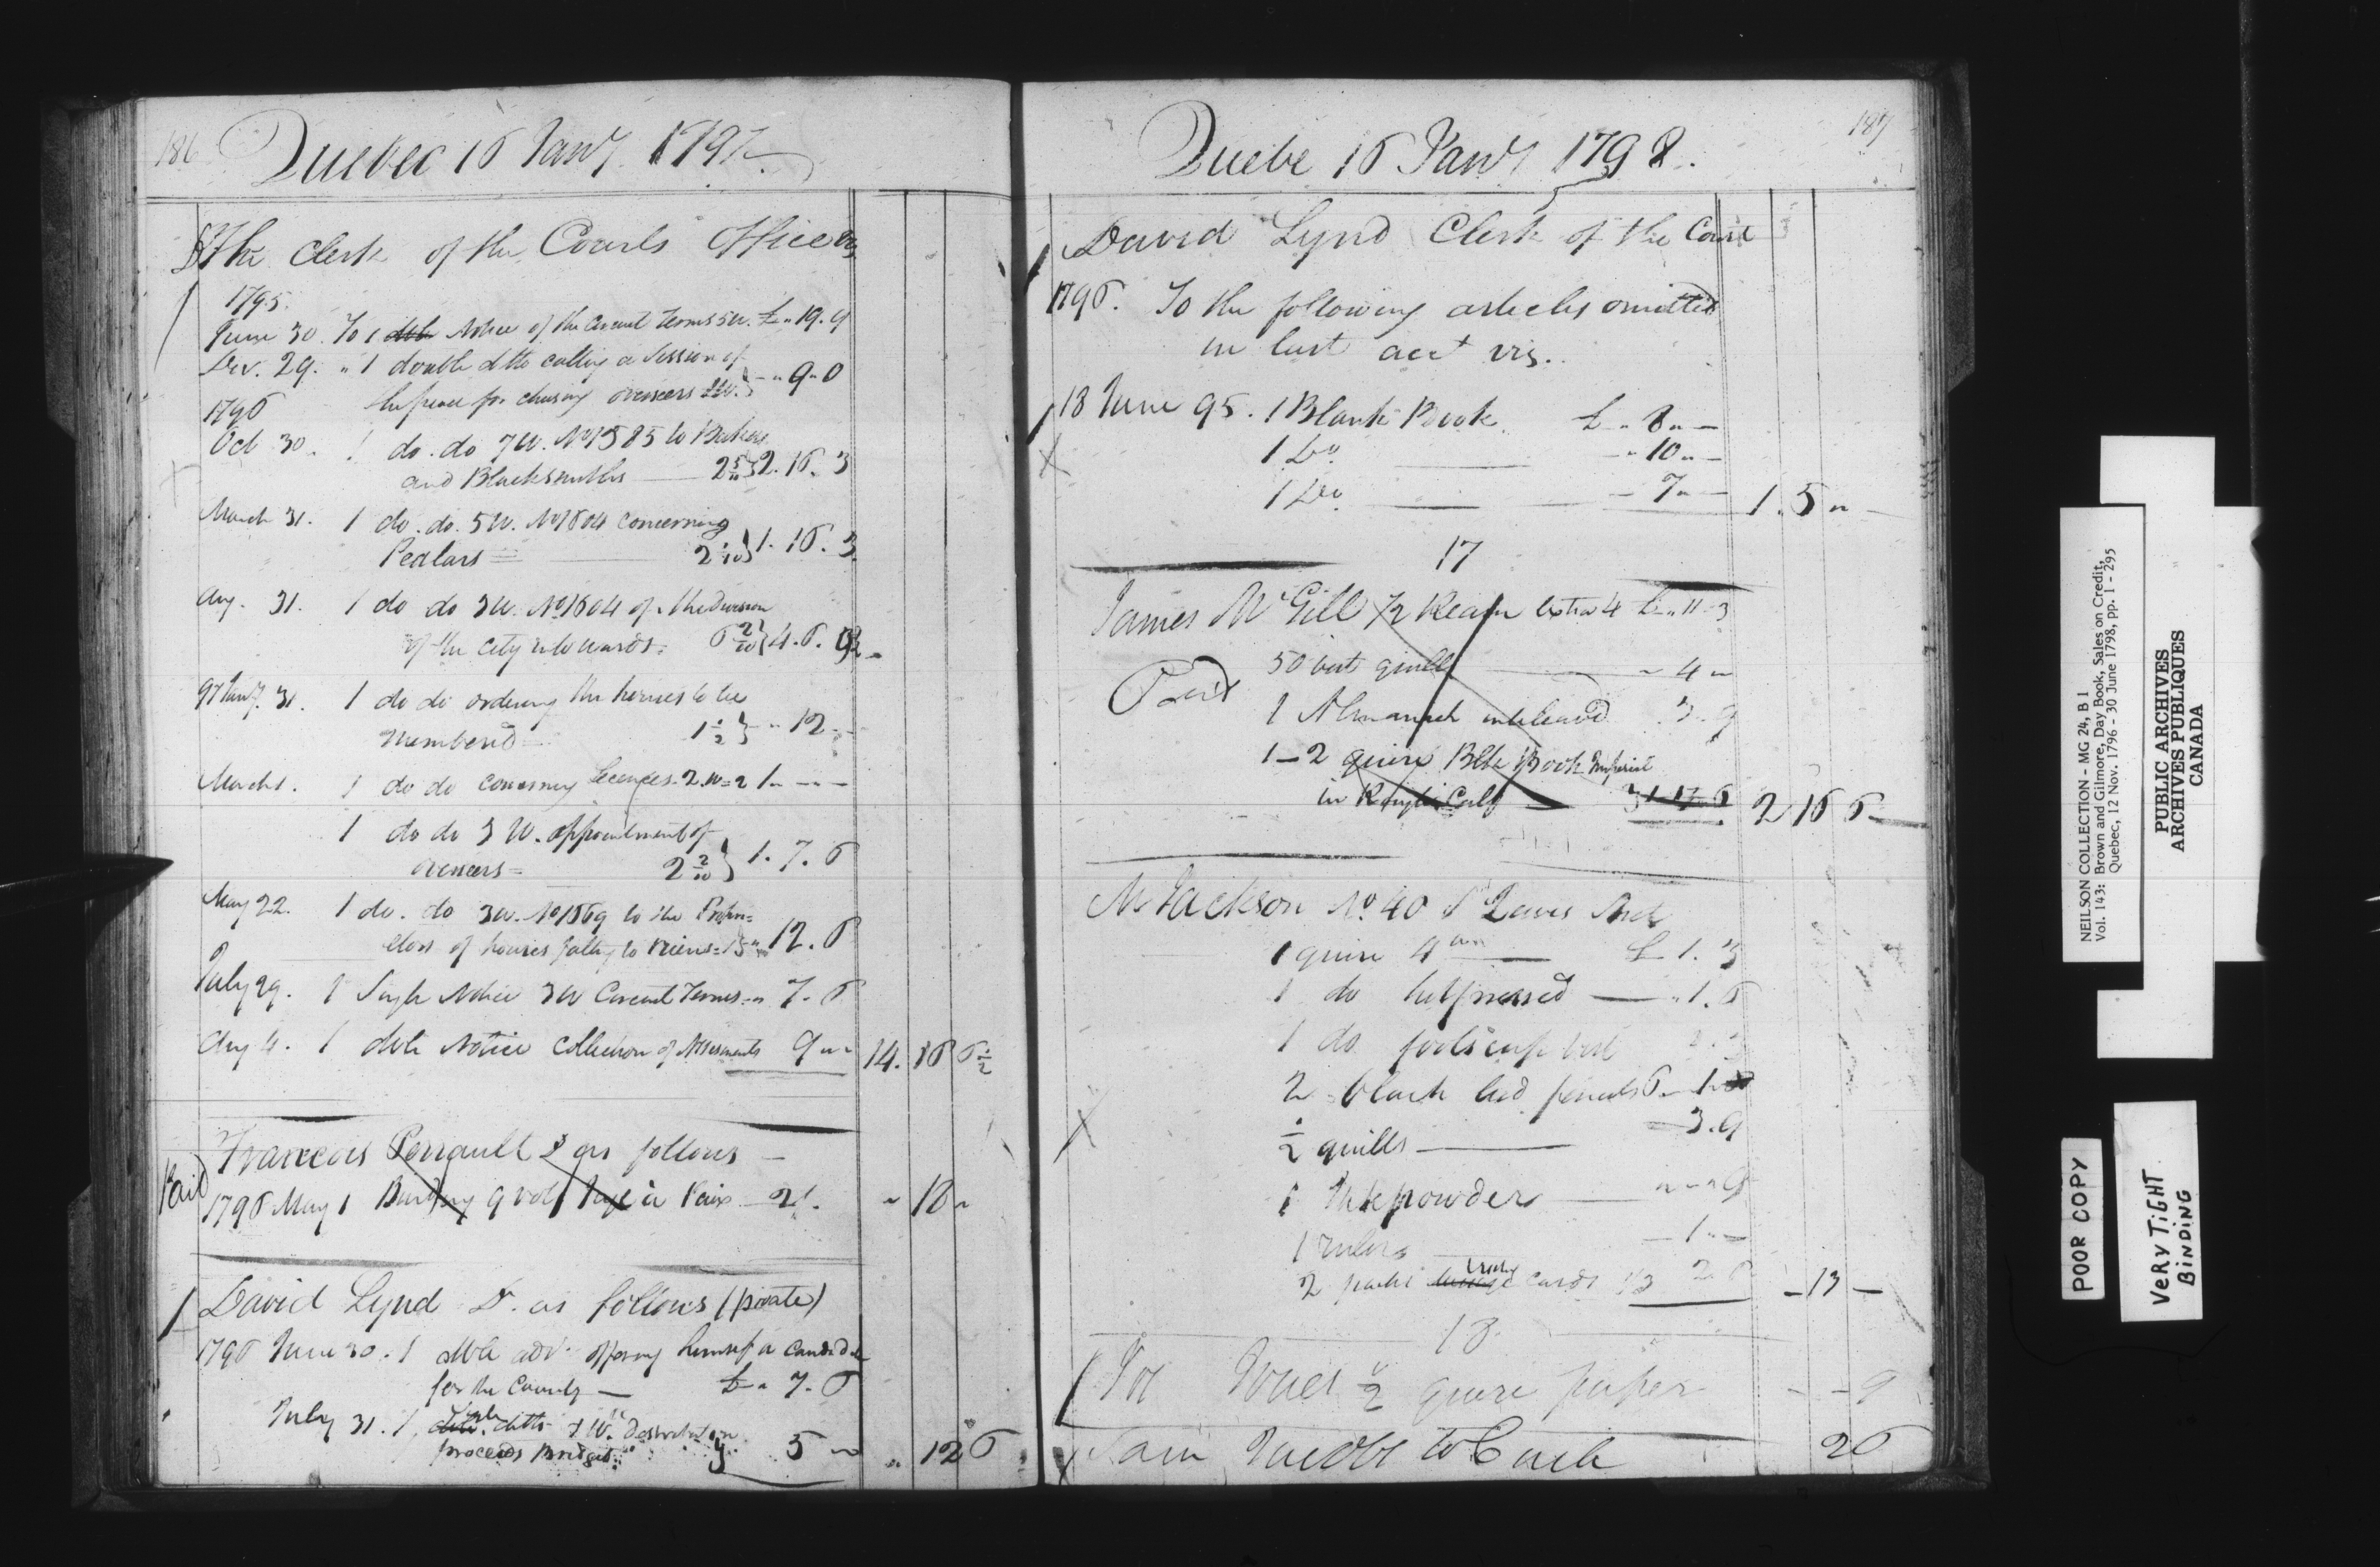 186
Quebec 16 Jany 1797
The Clerk of the Courts Office
1795.
June 30. To 1 Notice of the Circuit Terms 5w. £ " 19. 9
Dec. 29. " 1 double ditto calling a Session of
the peace for chusing overseers " 9 " 0
1796
Oct 30. 1 do. do 7w. No 1585 to Bakers
and Blacksmiths 2. 16. 3
March 31. 1 do. do. 5w. No 1604 concerning
Pedlars = 1. 16. 3
Aug. 31. 1 do do 3w. No 1604 of the Division
of the City into wards. 4. 6.
97 Jany. 31. 1 do do ordering the houses to be
numbered 1 1/2 } " 12 "
March 1. 1 do do concerning Licences. 2. w = 2 1 " - -
1 do do 3 W. appointment of
overseers = 2 2/10 } 1. 7. 6
May 22. 1 do. do 3w. No 1669 to the Proprie=
etors of houses falling to ruins = 12. 6
July 29. 1 Single Notice 3w Circuit Terms = " 7. 6
Aug 4. 1 dble Notice Collection of Assessments 9 " " 14. 16 6 1/2
Francois Perrault Dr as follows -
Paid
1796 May 1 Binding 9 vol à Paix 2/. " 18 "
David Lynd Dr. as follows (private)
1796 June 30. 1 dble adv. offering himself a Candidate
for the County - £ " 7. 6
July 31. 1 single ditto
proceeds Bridges 5 " " 12 6
187
Quebe 16 Jany 1798.
David Lynd Clerk of the Court
1796. To the following articles omitted
in last acct viz.
18 June 95. 1 Blank Book £ " 8 " -
1 Do. - " 10 " -
1 Do. - 7 " - 1. 5 "
17
James McGill 1/2 Ream Extra 4 £ " 11 - 3
50 best quills " 4 "
Paid
1 Almanack interleaved . 3. 9
1 - 2 quire Blk Book Imperial
in Rough Calf - 1 17 6 2 16 6
Mr Jackson No. 40 St Lewis Street
1 quire 4to £ 1. 3
1 do hotpressed - " 1. 6
1 do foolscap best
2 black lead pencils 6 - 1
1/2 quills - 3. 9
1 Inkpowder - " - " 9
1 rulers - 1 " -
2 packs Cards 1/3 2 6 - 13 -
18
For 1/2 quire paper - - 9
Sam to Cash 26
NEILSON COLLECTION - MG 24, B 1
Vol. 143: Brown and Gilmore, Day Book, Sales on Credit,
Quebec, 12 Nov. 1796 - 30 June 1798, pp. 1 - 295
PUBLIC ARCHIVES
ARCHIVES PUBLIQUES
CANADA
POOR COPY
VERY TiGHT
BiNDiNG